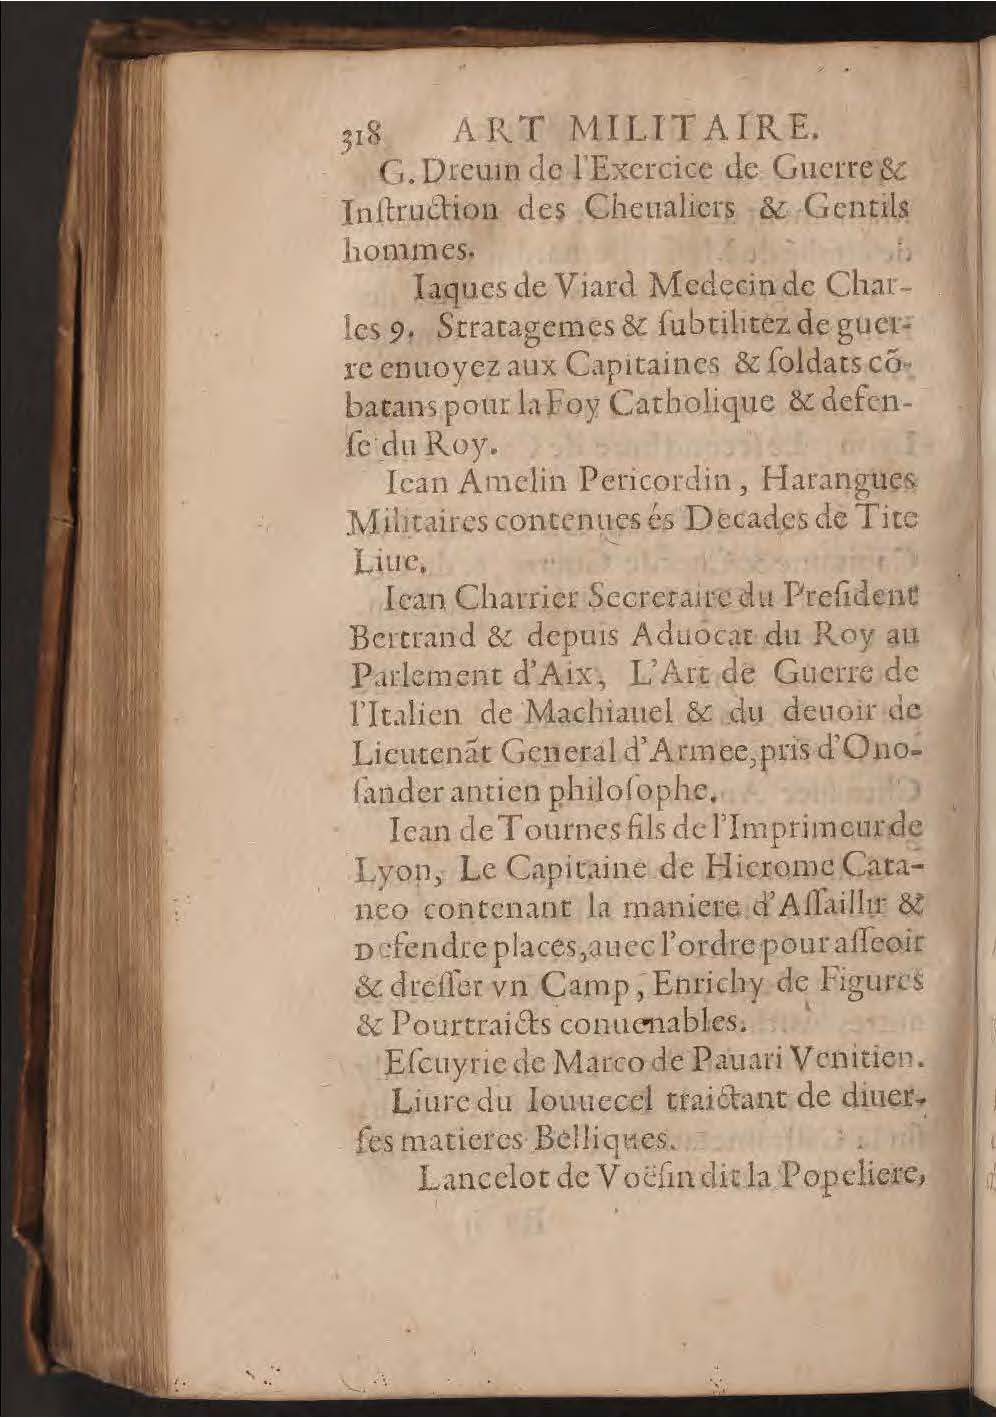 318 ART MILITAIRE.
G. Dreuin de l'Exercice de Guerre &
Inſtruction des Cheualiers & Gentils
hommes.
Iaques de Viard Medecin de Char-
les 9. Stratagemes & ſubtilitéz de guer-
re enuoyez aux Capitaines & ſoldats cõ-
batans pour la Foy Catholique & defen-
ſe du Roy.
Iean Amelin Pericordin, Harangues
Militaires contenues és Decades de Tite
Liue.
Iean Charrier Secretaire du Preſident
Bertrand & depuis Aduocat du Roy au
Parlement d'Aix, L'Art de Guerre de
l'Italien de Machiauel & du deuoir de
Lieutenãt General d'Armee, pris d'Ono-
ſander antien philoſophe.
Iean de Tournes fils de l'Imprimeur de
Lyon, Le Capitaine de Hierome Cata-
neo contenant la maniere d'Aſſaillir &
Defendre places, auec l'ordre pour aſſeoir
& dreſſer vn Camp, Enrichy de Figures
& Pourtraicts conuenables.
Eſcuyrie de Marco de Pauari Venitien.
Liure du Iouuecel traictant de diuer-
ſes matieres Belliques.
Lancelot de Voëſin dit la Popeliere,